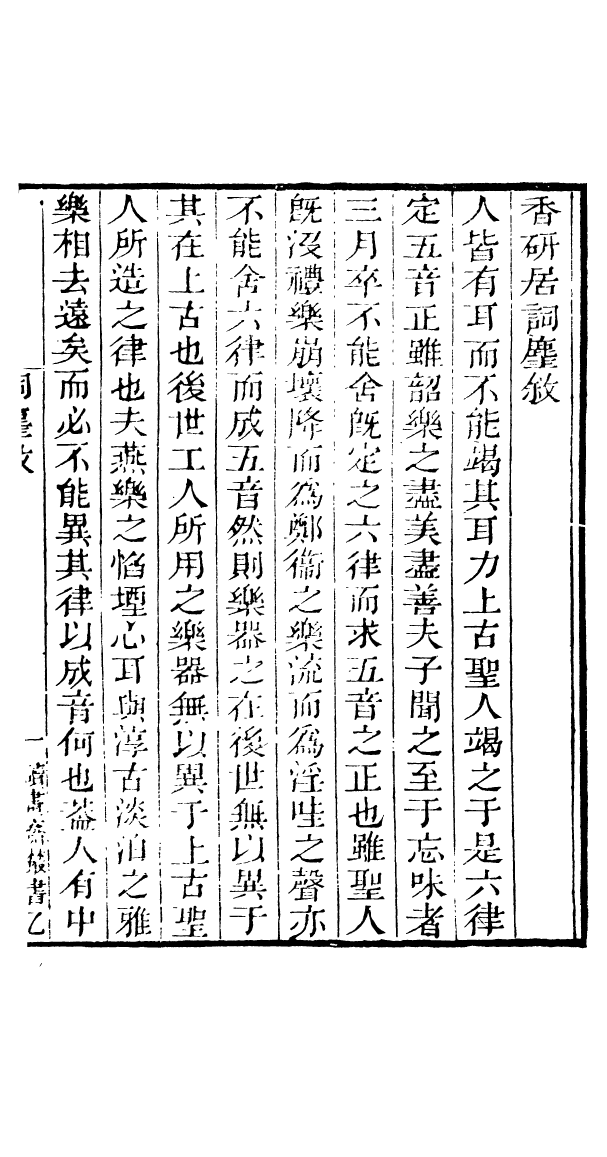 香研居詞麈敘
人皆有耳而不能竭其耳力上古聖人竭之于是六律
定五音正雖韶樂之盡美盡善夫子聞之至于忘味者
三月卒不能舍旣定之六律而求五音之正也雖聖人
旣沒禮樂崩壞降而爲鄭衞之樂流而爲淫哇之聲亦
不能舍六律而成五音然則樂器之在後世無以異于
其在上古也後世工人所用之樂器無以異于上古聖
人所造之律也夫燕樂之慆堙心耳與淳古淡泊之雅
樂相去遠矣而必不能異其律以成音何也葢人有中
詞麈敘
一
讀畫齋叢書乙